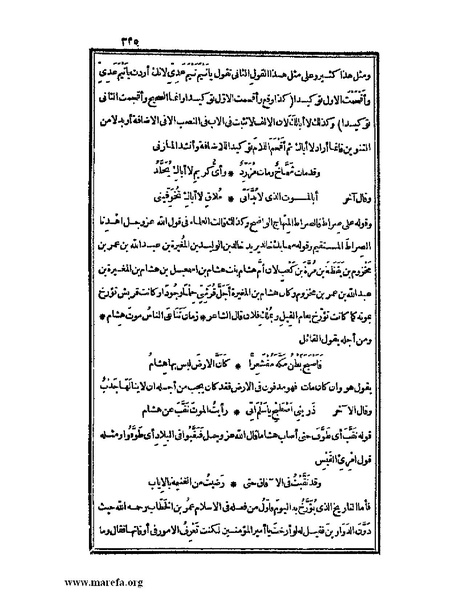 ٣٤٥
ومثل هذا كثير وعلى مثل هذا القول الثاني تقول ياتَيْمَ تَيْمَ عَدِيٍّ لانك أردت ياتَيْمَ عَدِيٍّ
وأقْحَمْتَ الاول توكيدا (كذا وقع وأقحمت الاول توكيدا وانما الصحيح وأقحمت الثاني
توكيدا) وكذلك لا أبالَكَ لان الالف لا تثبت في الاب في النصب الا في الاضافة أو بدلا من
التنوين فانما أراد لا أباك ثم أقْحَمَ اللام توكيدا للاضافة وأنشد المازني
وقد مات شَمَّاخٌ ومات مُزَرِّدٌ * وأيُّ كريم لا أباكِ يُخَلَّدُ
وقال آخر أبا لموت الذي لا بُدَّ أنّي * مُلاقٍ لا أباكِ تُخَوّفيني
وقوله على صراط فالصراط المنهاج الواضح وكذلك قالت العلماء في قول الله عز وجل اهدنا
الصراط المستقيم وقوله خالد بن الوليد بن المُغيرة بن عبد الله بن عمر بن
مخزوم بن يَقَظَة بن مُرَّة بن كعب لان أمَّ هشام بنت هشام بن اسمعيل بن هشام بن المغيرة بن
عبد الله بن عمر بن مخزوم وكان هشام بن المغيرة أجَلَّ قُرَشيّ حلما وجودا وكانت قريش تؤرخ
بموته كما كانت تؤرخ بعام الفيل وبمُلك فلان قال الشاعر * زمانَ تَنَاعَى الناسُ موتَ هشام *
ومن أجله يقول القائل
فأصبح بَطْنُ مكةَ مُقْشَعِرًّا * كأنّ الارضَ ليس بها هشام
يقول هو وان كان مات فهو مدفون في الارض فقد كان يجب من أجله أن لا ينالها جَدْبٌ
وقال الآخر ذَريني أصْطَبِحْ ياسَلْمَ اني * رأيتُ الموتَ نَقَّبَ عن هشام
قوله نَقَّبَ أي طَوَّفَ حتى أصاب هشاما قال الله عز وجل فنقّبوا في البلاد أي طَوَّفُوا ومثله
قول امرئ القَيْس
وقد نَقَّبْتُ في الآفاق حتى * رَضيتُ من الغنيمة بالإياب
فأما التاريخ الذي يُؤَرَّخُ به اليومَ فأول من فعله في الاسلام عمرُ بن الخطّاب رحمه الله حيث
دَوَّنَ الدواوين فقيل له لو أرخت يا أمير المؤمنين لكنت تَعْرِفُ الامور في أوقاتها فقال وما
www.marefa.org